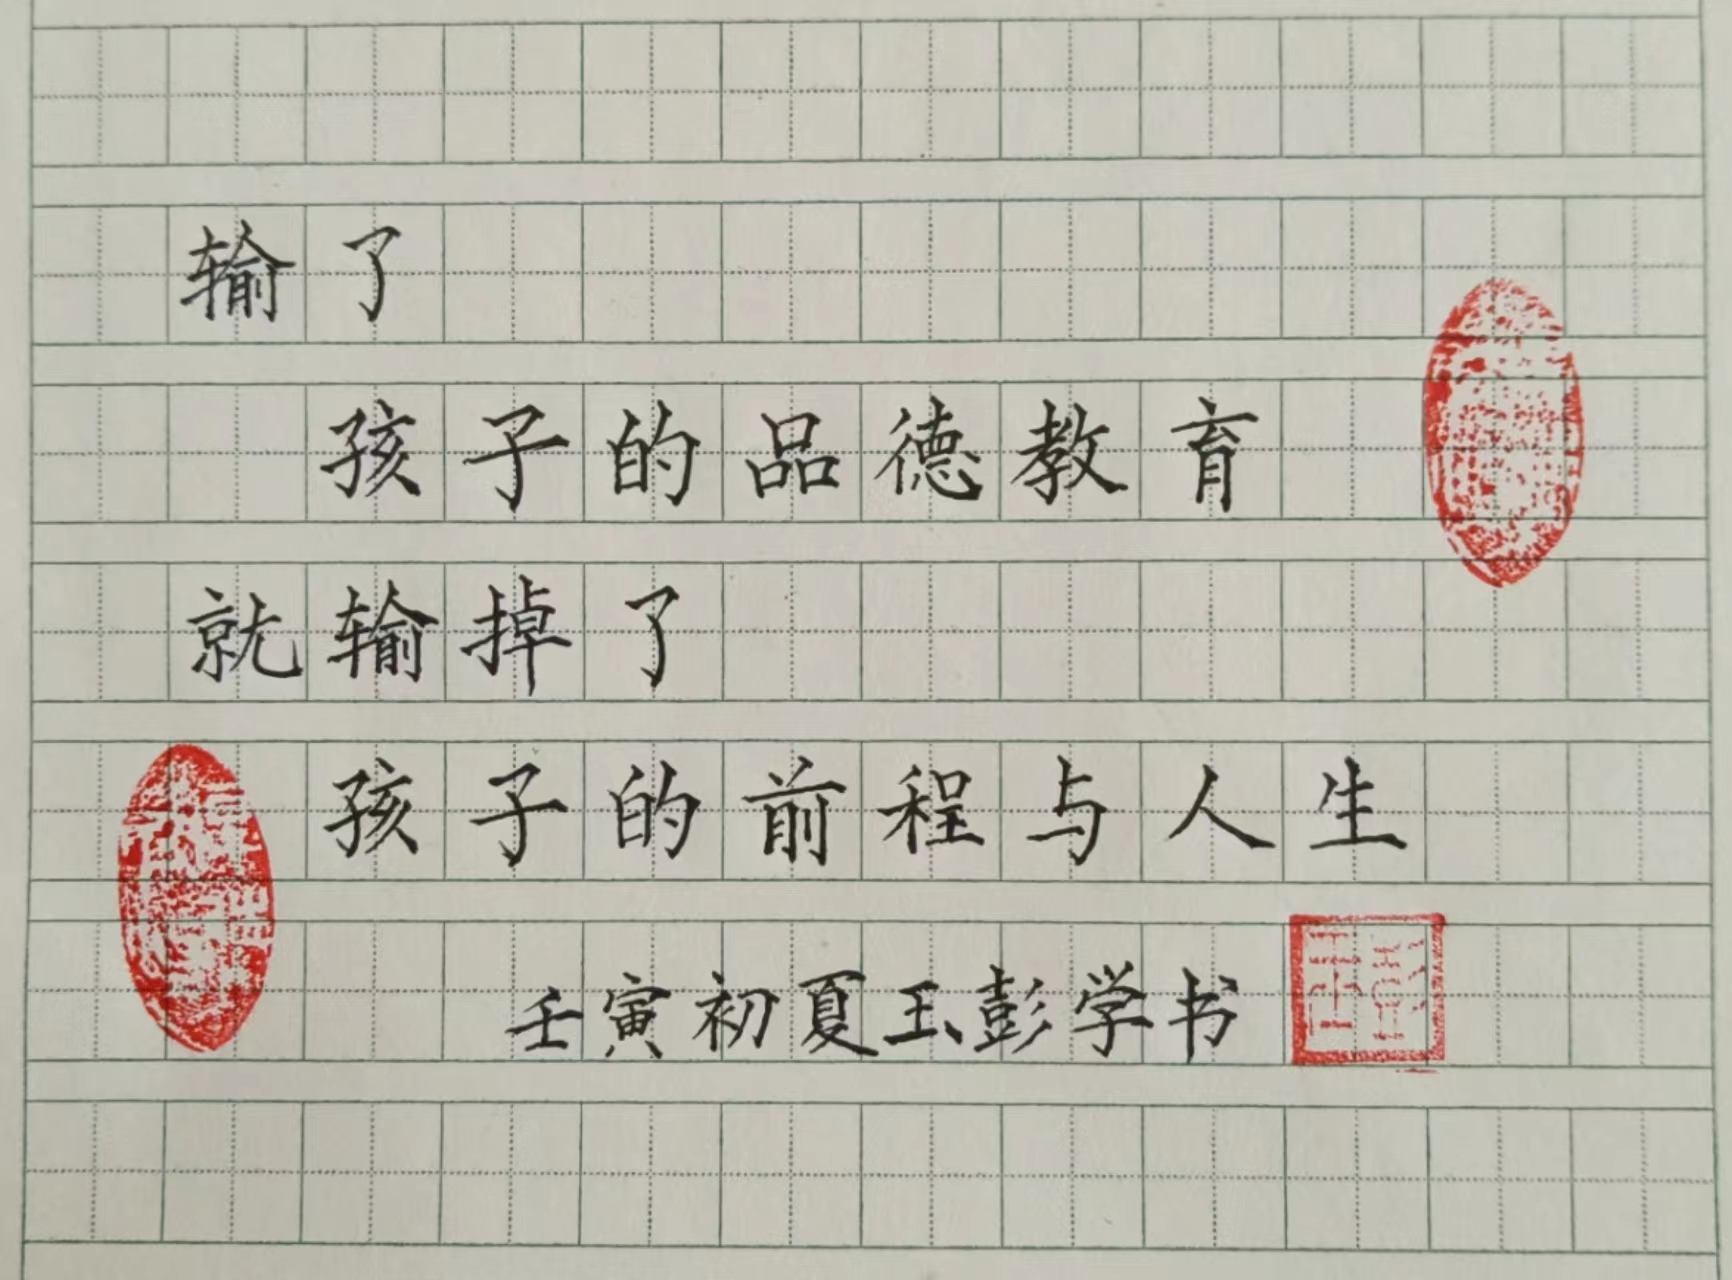 输了
孩子的品德教育
就输掉了
孩子的前程与人生
壬寅初夏玉彭学书